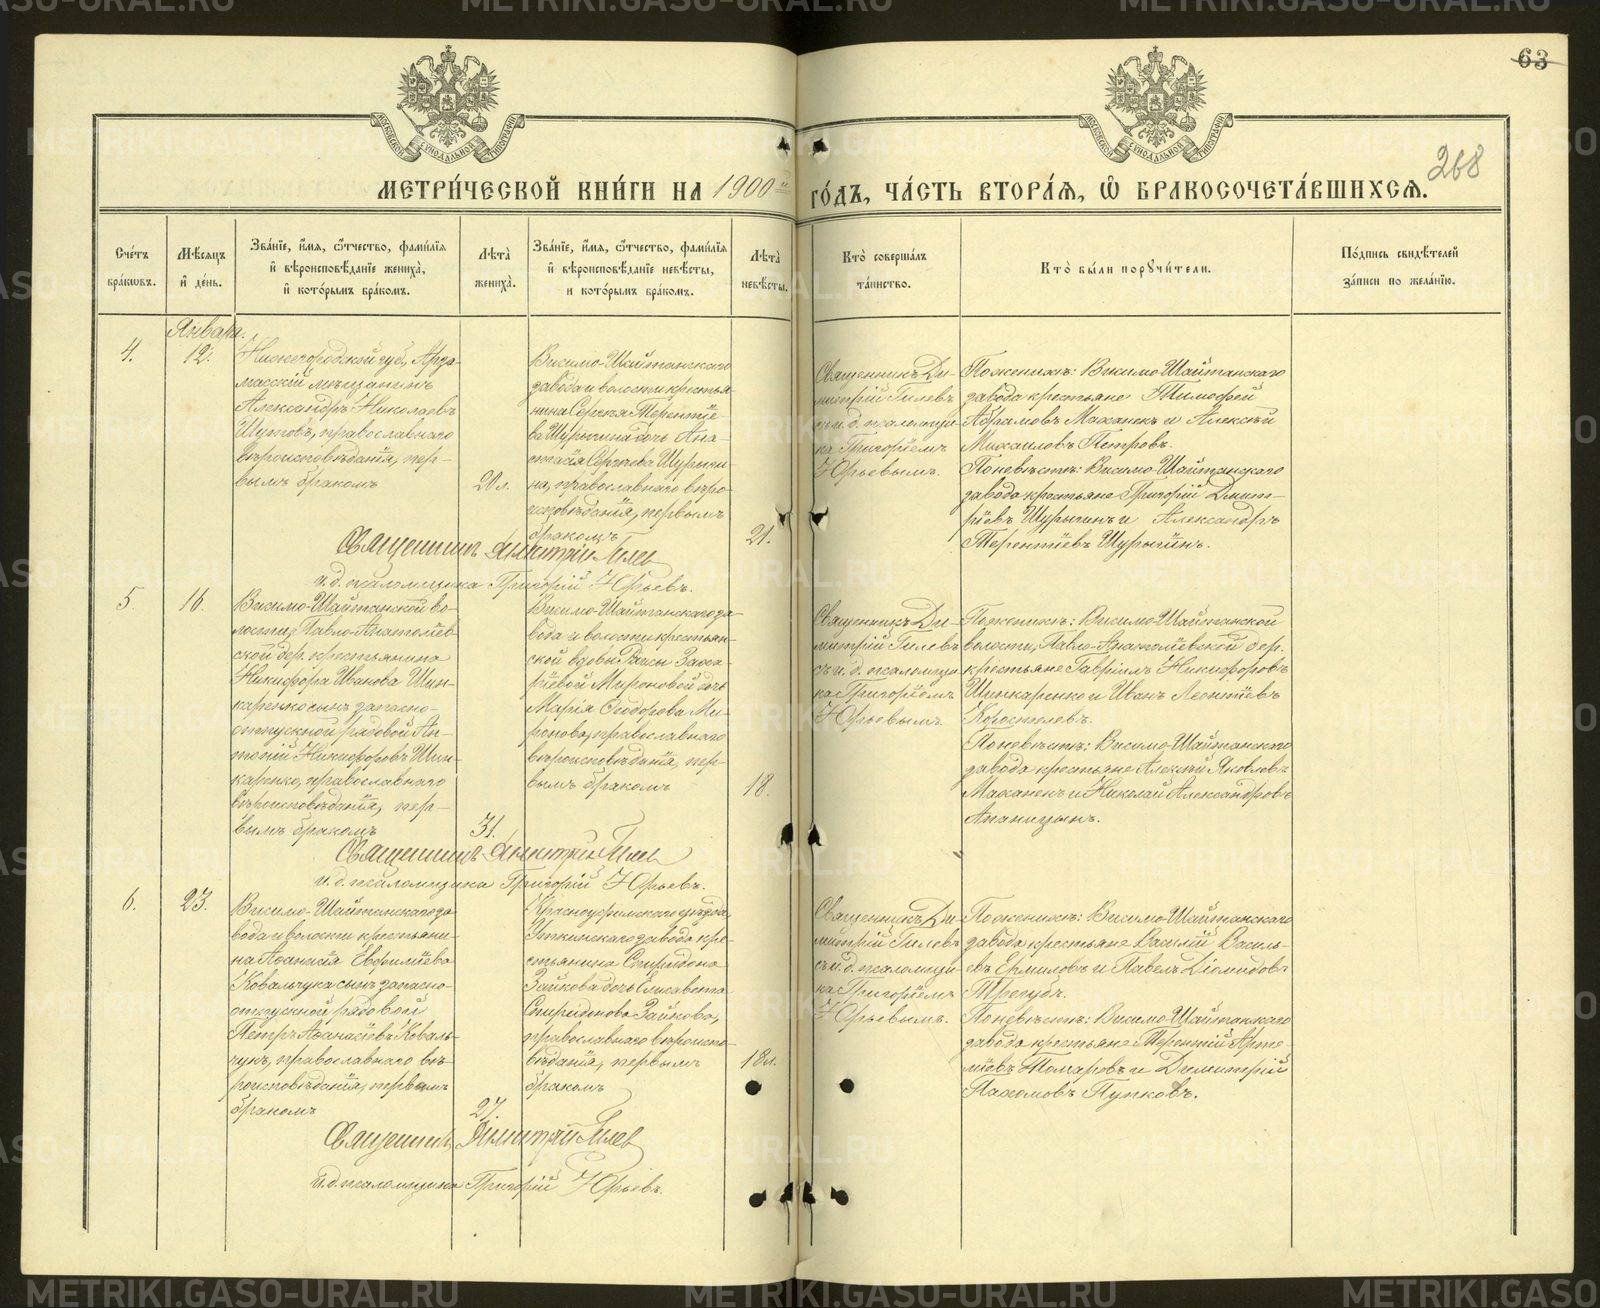 63
268
МЕТРИ́ЧЕСКОЙ КНИ́ГИ НА 1900й ГО́ДЪ, ЧА́СТЬ ВТОРА́Я, Ѿ БРАКОСОЧЕТА́ВШИХСѦ.
МОСКОВСКОЙ СѴНОДАЛЬНОЙ ТИПОГРАФІИ
МОСКОВСКОЙ СѴНОДАЛЬНОЙ ТИПОГРАФІИ
Сче́тъ
бра́кωвъ.
Мѣ́сяцъ
и҆ де́нь.
Зва́нїе, и҆́мя, ѻ҆́тчество, фами́лїя
и҆ вѣроисповѣ́данїе жениха̀,
и҆ кото́рымъ бра́комъ.
Лѣта̀
жениха̀.
Зва́нїе, и҆́мя, ѻ҆́тчество, фами́лїя
и҆ вѣроисповѣ́данїе невѣ́сты,
и кото́рымъ бра́комъ.
Лѣта̀
невѣ́сты.
Кто̀ соверша́лъ
та́инство.
Кто̀ бы́ли порꙋчи́тели.
По́дпись свидѣ́телей
за́писи по жела́нїю.
Января.
4.
12.
Нижегородской губ., Арза-
масскій мѣщанинъ
Александръ Николаевъ
Шутовъ, православнаго
вѣроисповѣданія, пер-
вымъ бракомъ
20 л.
Висимо-Шайтанскаго
завода и волости крестья-
нина Сергѣя Терентіе-
ва Шурыгина дочь Ана-
стасія Сергѣева Шурыги-
на, православнаго вѣро-
исповѣданія, первымъ
бракомъ
21.
Священникъ Ди-
митрій Гилевъ
съ и. д. псаломщи-
ка Григоріемъ
Юрьевымъ.
По женихѣ: Висимо-Шайтанскаго
завода крестьяне Тимофей
Абрамовъ Маханекъ и Алексѣй
Михаиловъ Петровъ.
По невѣстѣ: Висимо-Шайтанскаго
завода крестьяне Григорій Дмит-
ріевъ Шурыгинъ и Александръ
Терентіевъ Шурыгинъ.
Священникъ Димитрій Гилевъ
и. д. псаломщика Григорій Юрьевъ.
5.
16.
Висимо-Шайтанской во-
лости, Павло-Анатоліев-
ской дер. крестьянина
Никифора Иванова Шин-
каренко сынъ запасно-
отпускной рядовой Ан-
тоній Никифоровъ Шин-
каренко, православнаго
вѣроисповѣданія, пер-
вымъ бракомъ
31.
Висимо-Шайтанскаго за-
вода и волости крестьян-
ской вдовы Раисы Заха-
ріевой Мироновой дочь
Марія Ѳеодорова Ми-
ронова, православнаго
вѣроисповѣданія, пер-
вымъ бракомъ
18.
Священникъ Ди-
митрій Гилевъ
съ и. д. псаломщи-
ка Григоріемъ
Юрьевымъ.
По женихѣ: Висимо-Шайтанской
волости, Павло-Анатоліевской дер.
крестьяне Гавріилъ Никифоровъ
Шинкаренко и Иванъ Леонтіевъ
Коростелевъ.
По невѣстѣ: Висимо-Шайтанскаго
завода крестьяне Алексѣй Яковлевъ
Маханекъ и Николай Александровъ
Ананицынъ.
Священникъ Димитрій Гилевъ
и. д. псаломщика Григорій Юрьевъ.
6.
23.
Висимо-Шайтанскаго за-
вода и волости крестьяни-
на Аѳанасія Евфиміева
Ковальчука сынъ запасно-
отпускной рядовой
Петръ Аѳанасіевъ Коваль-
чукъ, православнаго вѣ-
роисповѣданія, первымъ
бракомъ
27.
Красноуфимскаго уѣзда,
Уткинскаго завода кре-
стьянина Спиридона
Зайкова дочь Елисавета
Спиридонова Зайкова,
православнаго вѣроиспо-
вѣданія, первымъ
бракомъ
18 л.
Священникъ Ди-
митрій Гилевъ
съ и. д. псаломщи-
ка Григоріемъ
Юрьевымъ.
По женихѣ: Висимо-Шайтанскаго
завода крестьяне Василій Василь-
евъ Ермиловъ и Павелъ Діомидовъ
Трегубъ.
По невѣстѣ: Висимо-Шайтанскаго
завода крестьяне Терентій Арте-
міевъ Томаровъ и Димитрій
Пахомовъ Пупковъ.
Священникъ Димитрій Гилевъ
и. д. псаломщика Григорій Юрьевъ.
METRIKI.GASO-URAL.RU